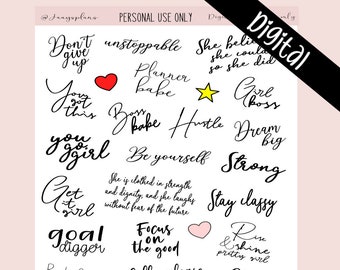 @Jaazysplans PERSONAL USE ONLY
Digital
Don't give up
unstoppable
She believed
she could
so she did
You got this
Planner babe
Girl boss
Boss babe
Hustle
Dream big
you go, girl
Be yourself
Strong
Get it girl
She is clothed in strength
and dignity, and she laughs
without fear of the future
Stay classy
goal digger
Focus on the good
Rise &
shine
pretty girl